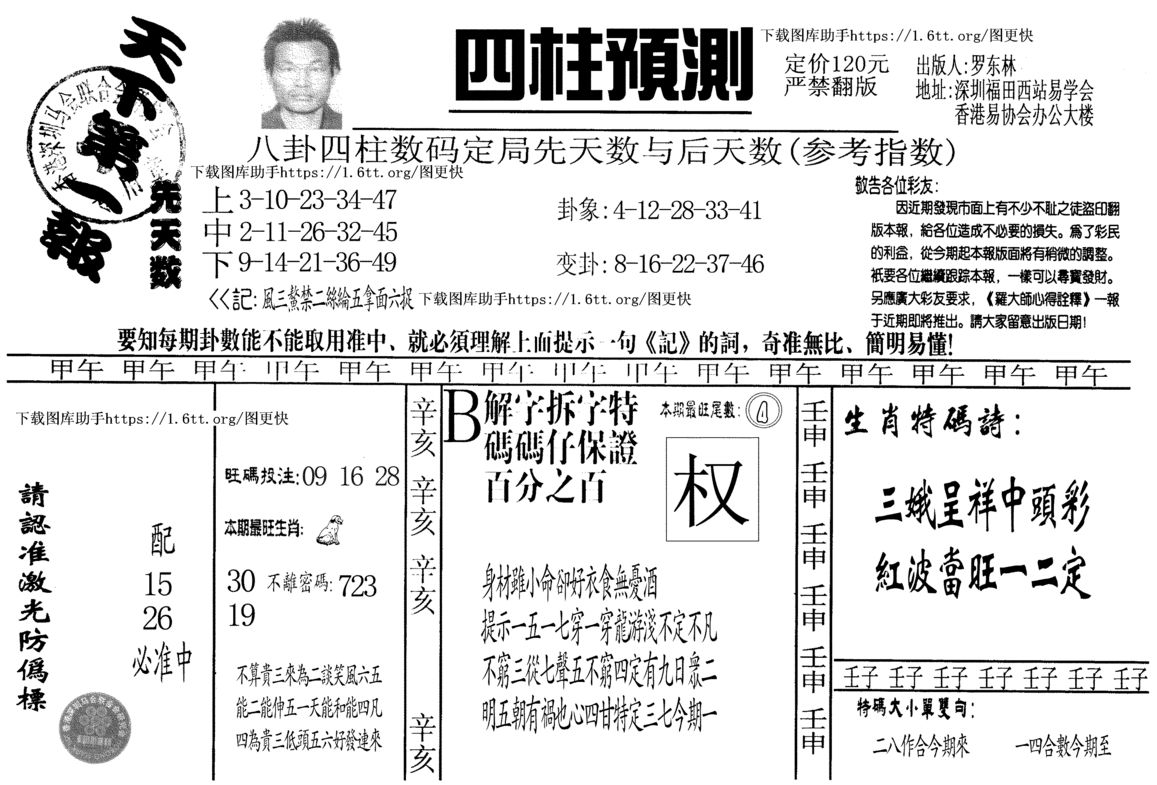 天下第一報
四柱預測
下载图库助手https://1.6tt.org/图更快
定价120元
严禁翻版
出版人:罗东林
地址:深圳福田西站易学会
香港易协会办公大楼
八卦四柱数码定局先天数与后天数(参考指数)
下载图库助手https://1.6tt.org/图更快
先天数
上 3-10-23-34-47
中 2-11-26-32-45
下 9-14-21-36-49
卦象:4-12-28-33-41
变卦:8-16-22-37-46
<<記:風三鰲禁二綠綸五拿面六捉
下载图库助手https://1.6tt.org/图更快
敬告各位彩友:
因近期發現市面上有不少不耻之徒盜印翻
版本報，給各位造成不必要的損失。為了彩民
的利益，從今期起本報版面將有稍微的調整。
祇要各位繼續跟踪本報，一樣可以尋寶發財。
另應廣大彩友要求，《羅大師心得詮釋》一報
于近期即將推出。請大家留意出版日期!
要知每期卦數能不能取用准中、就必須理解上面提示一句《記》的詞，奇准無比、簡明易懂!
甲午 甲午 甲午 甲午 甲午 甲午 甲午 甲午 甲午 甲午 甲午 甲午 甲午 甲午 甲午
下载图库助手https://1.6tt.org/图更快
請認准激光防僞標
配
15
26
必准中
旺碼投注:09 16 28
本期最旺生肖:
30 不離密碼:723
19
不算貴三來為二談笑風六五
能二能伸五一天能和能四凡
四為貴三低頭五六好發連來
辛亥
辛亥
辛亥
辛亥
B解字拆字特
碼碼仔保證
百分之百
本期最旺尾數:
权
身材雖小命卻好衣食無憂酒
提示一五一七穿一穿龍游淺不定不凡
不窮三從七聲五不窮四定有九日眾二
明五朝有禍也心四甘特定三七今期一
壬申
壬申
壬申
壬申
壬申
壬申
生肖特碼詩:
三娥呈祥中頭彩
紅波當旺一二定
壬子 壬子 壬子 壬子 壬子 壬子 壬子
特碼大小單雙句:
二八作合今期來 一四合數今期至